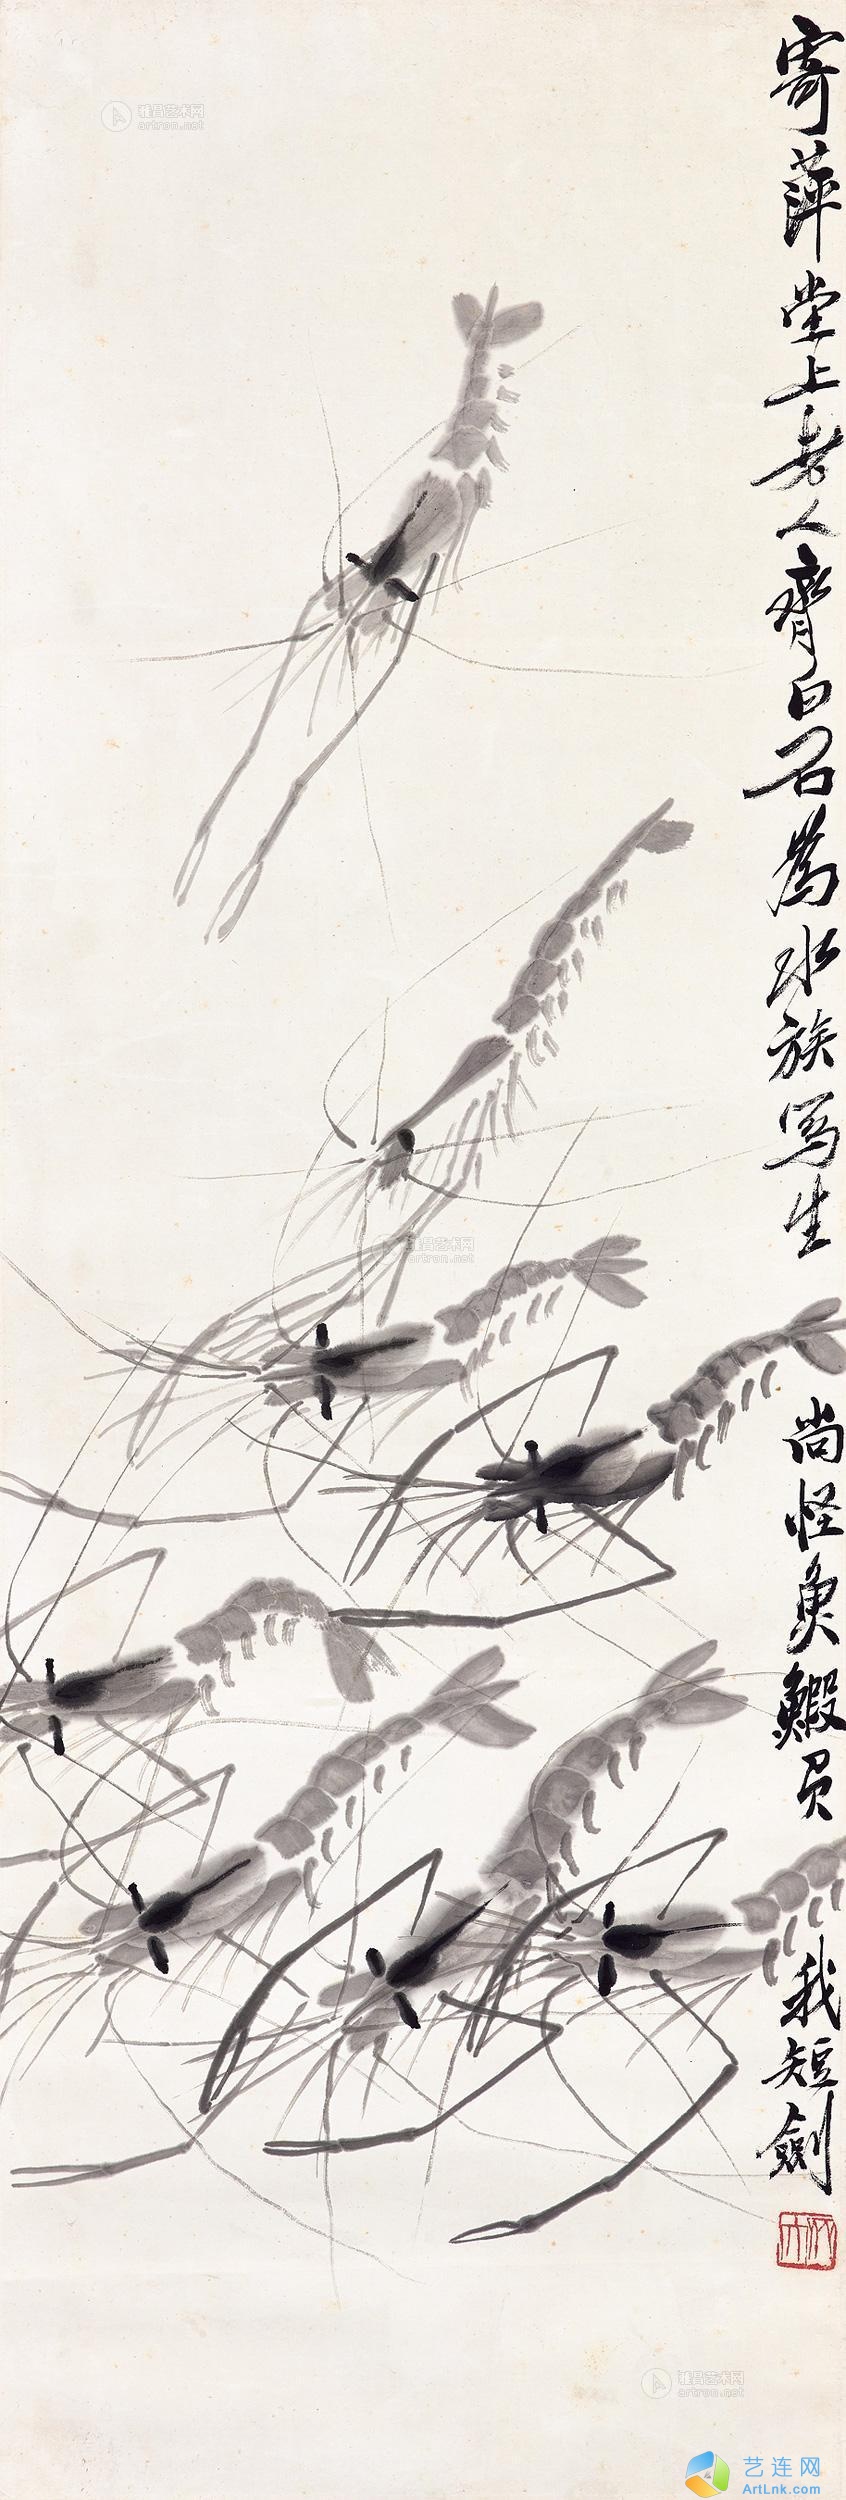 寄萍堂上老人齊白石為水族寫生 尚怪魚鰕君 我短劍
雅昌艺术网
artron.net
雅昌艺术网
artron.net
雅昌艺术网
artron.net
艺连网
ArtLnk.com